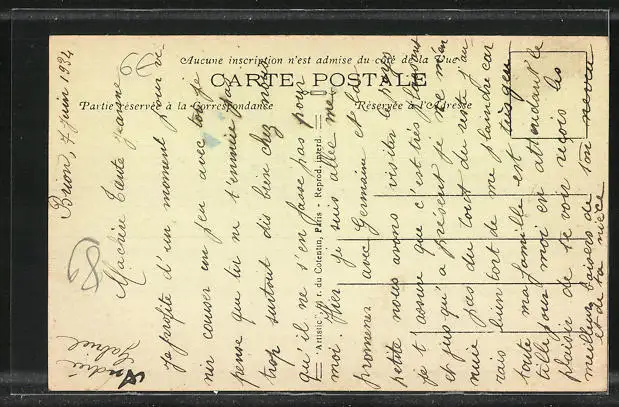 Aucune inscription n'est admise du côté de la Vue
CARTE POSTALE
Partie réservée à la Correspondance
Réservée à l'Adresse
"Artistic" r. du Cotentin, Paris - Reprod. interd.
Brion, 7 juin 1934
Ma chère Tante Jeanne
je profite d'un moment pour ve
nir causer un peu avec toi je
pense que tu ne t'ennuie pas
trop surtout dis bien chez nous
qu'il ne s'en fasse pas pour
moi. Hier je suis allée me
promener avec Germaine et la
petite nous avons visiter le pays
je t'assure que c'est très plaisant
et jusqu'a présent je ne m'en
nuie pas du tout du reste j'au
rais bien tort de me plaindre car
toute ma famille est très gen
tille pour moi en attendant le
plaisir de te voir reçois les
meilleurs baisers de ton neveu
et de ta nièce
André
Gabriel